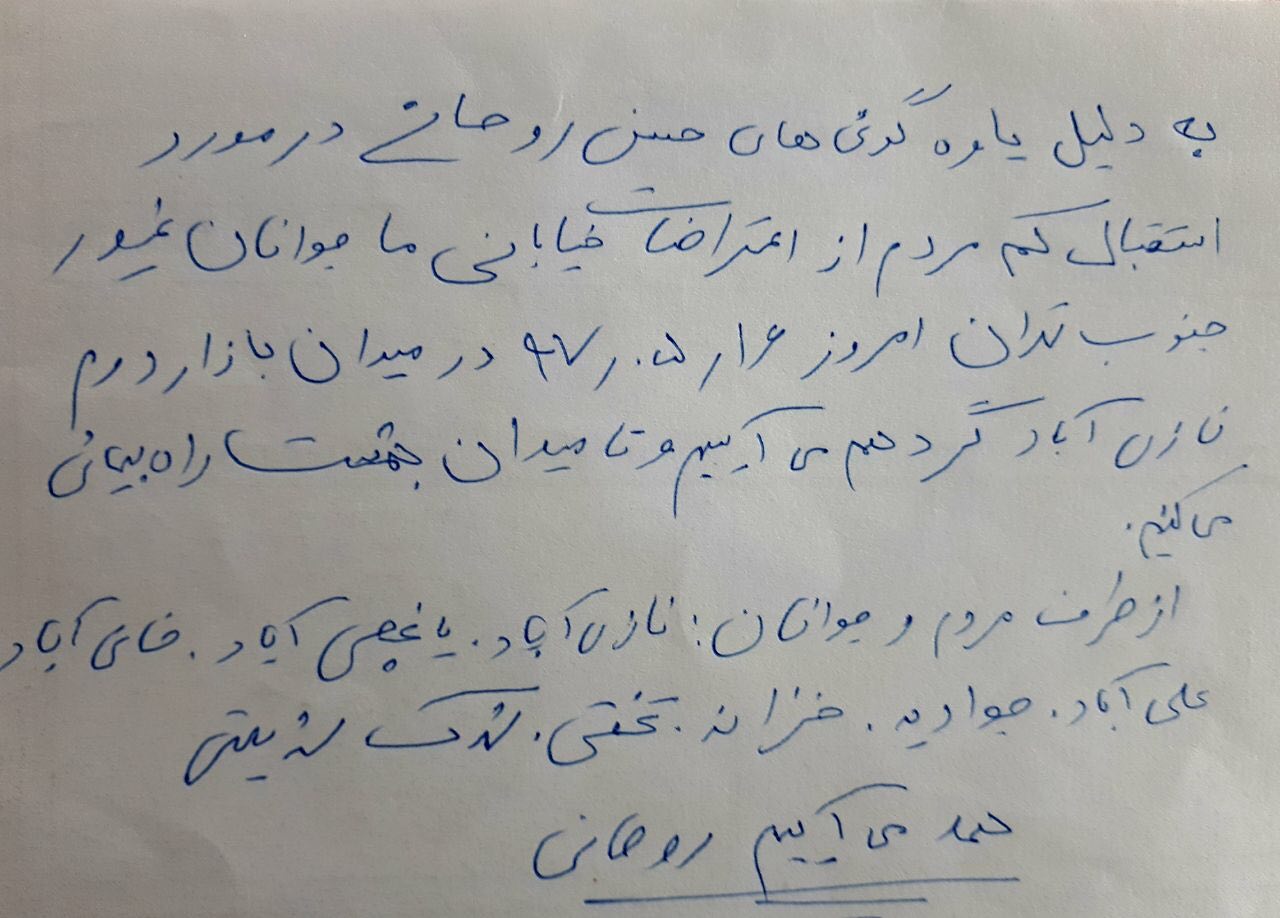 به دلیل یاوه گوئی های حسن روحانی در مورد
استقبال کم مردم از اعتراضات خیابانی ما جوانان غیور
جنوب تهران امروز ۱۶ر۰۵ر۹۷ در میدان بازار دوم
نازی آباد گرد هم می آییم و تا میدان بهشت راه پیمائی
می کنیم.
از طرف مردم و جوانان: نازی آباد. یاغچی آباد. خانی آباد
علی آباد. جوادیه. خزانه. تختی. شهرک شریعتی
همه می آییم روحانی